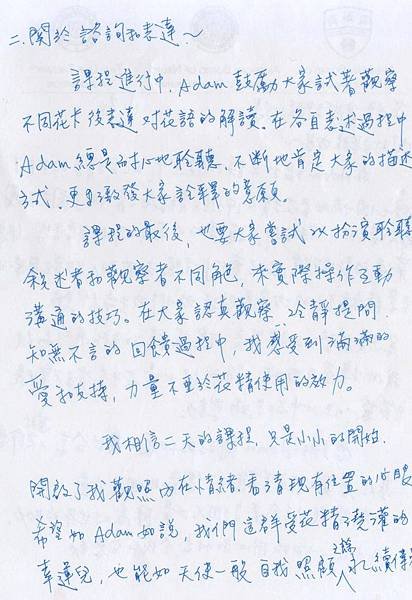 二.關於諮詢和表達～
課程進行中, Adam鼓勵大家試著觀察
不同花卡後表達對花語的解讀.在各自表述過程中
Adam總是耐心地聆聽.不斷地肯定大家的描述
方式.更激發大家詮釋的意願.
課程的最後,也要大家嘗試以扮演聆聽
敘述者和觀察者不同角色,來實際操作互動
溝通的技巧。在大家認真觀察.冷靜提問.
知無不言的回饋過程中,我感受到滿滿的
愛和支持,力量不亞於花精使用的效力。
我相信二天的課程,只是小小的開始.
開啟了我觀照內在情緒.看清現有位置的心眼
希望如Adam如說,我們這群受花精澆灌的
幸運兒,也能如天使一般自我照顧 永續傳